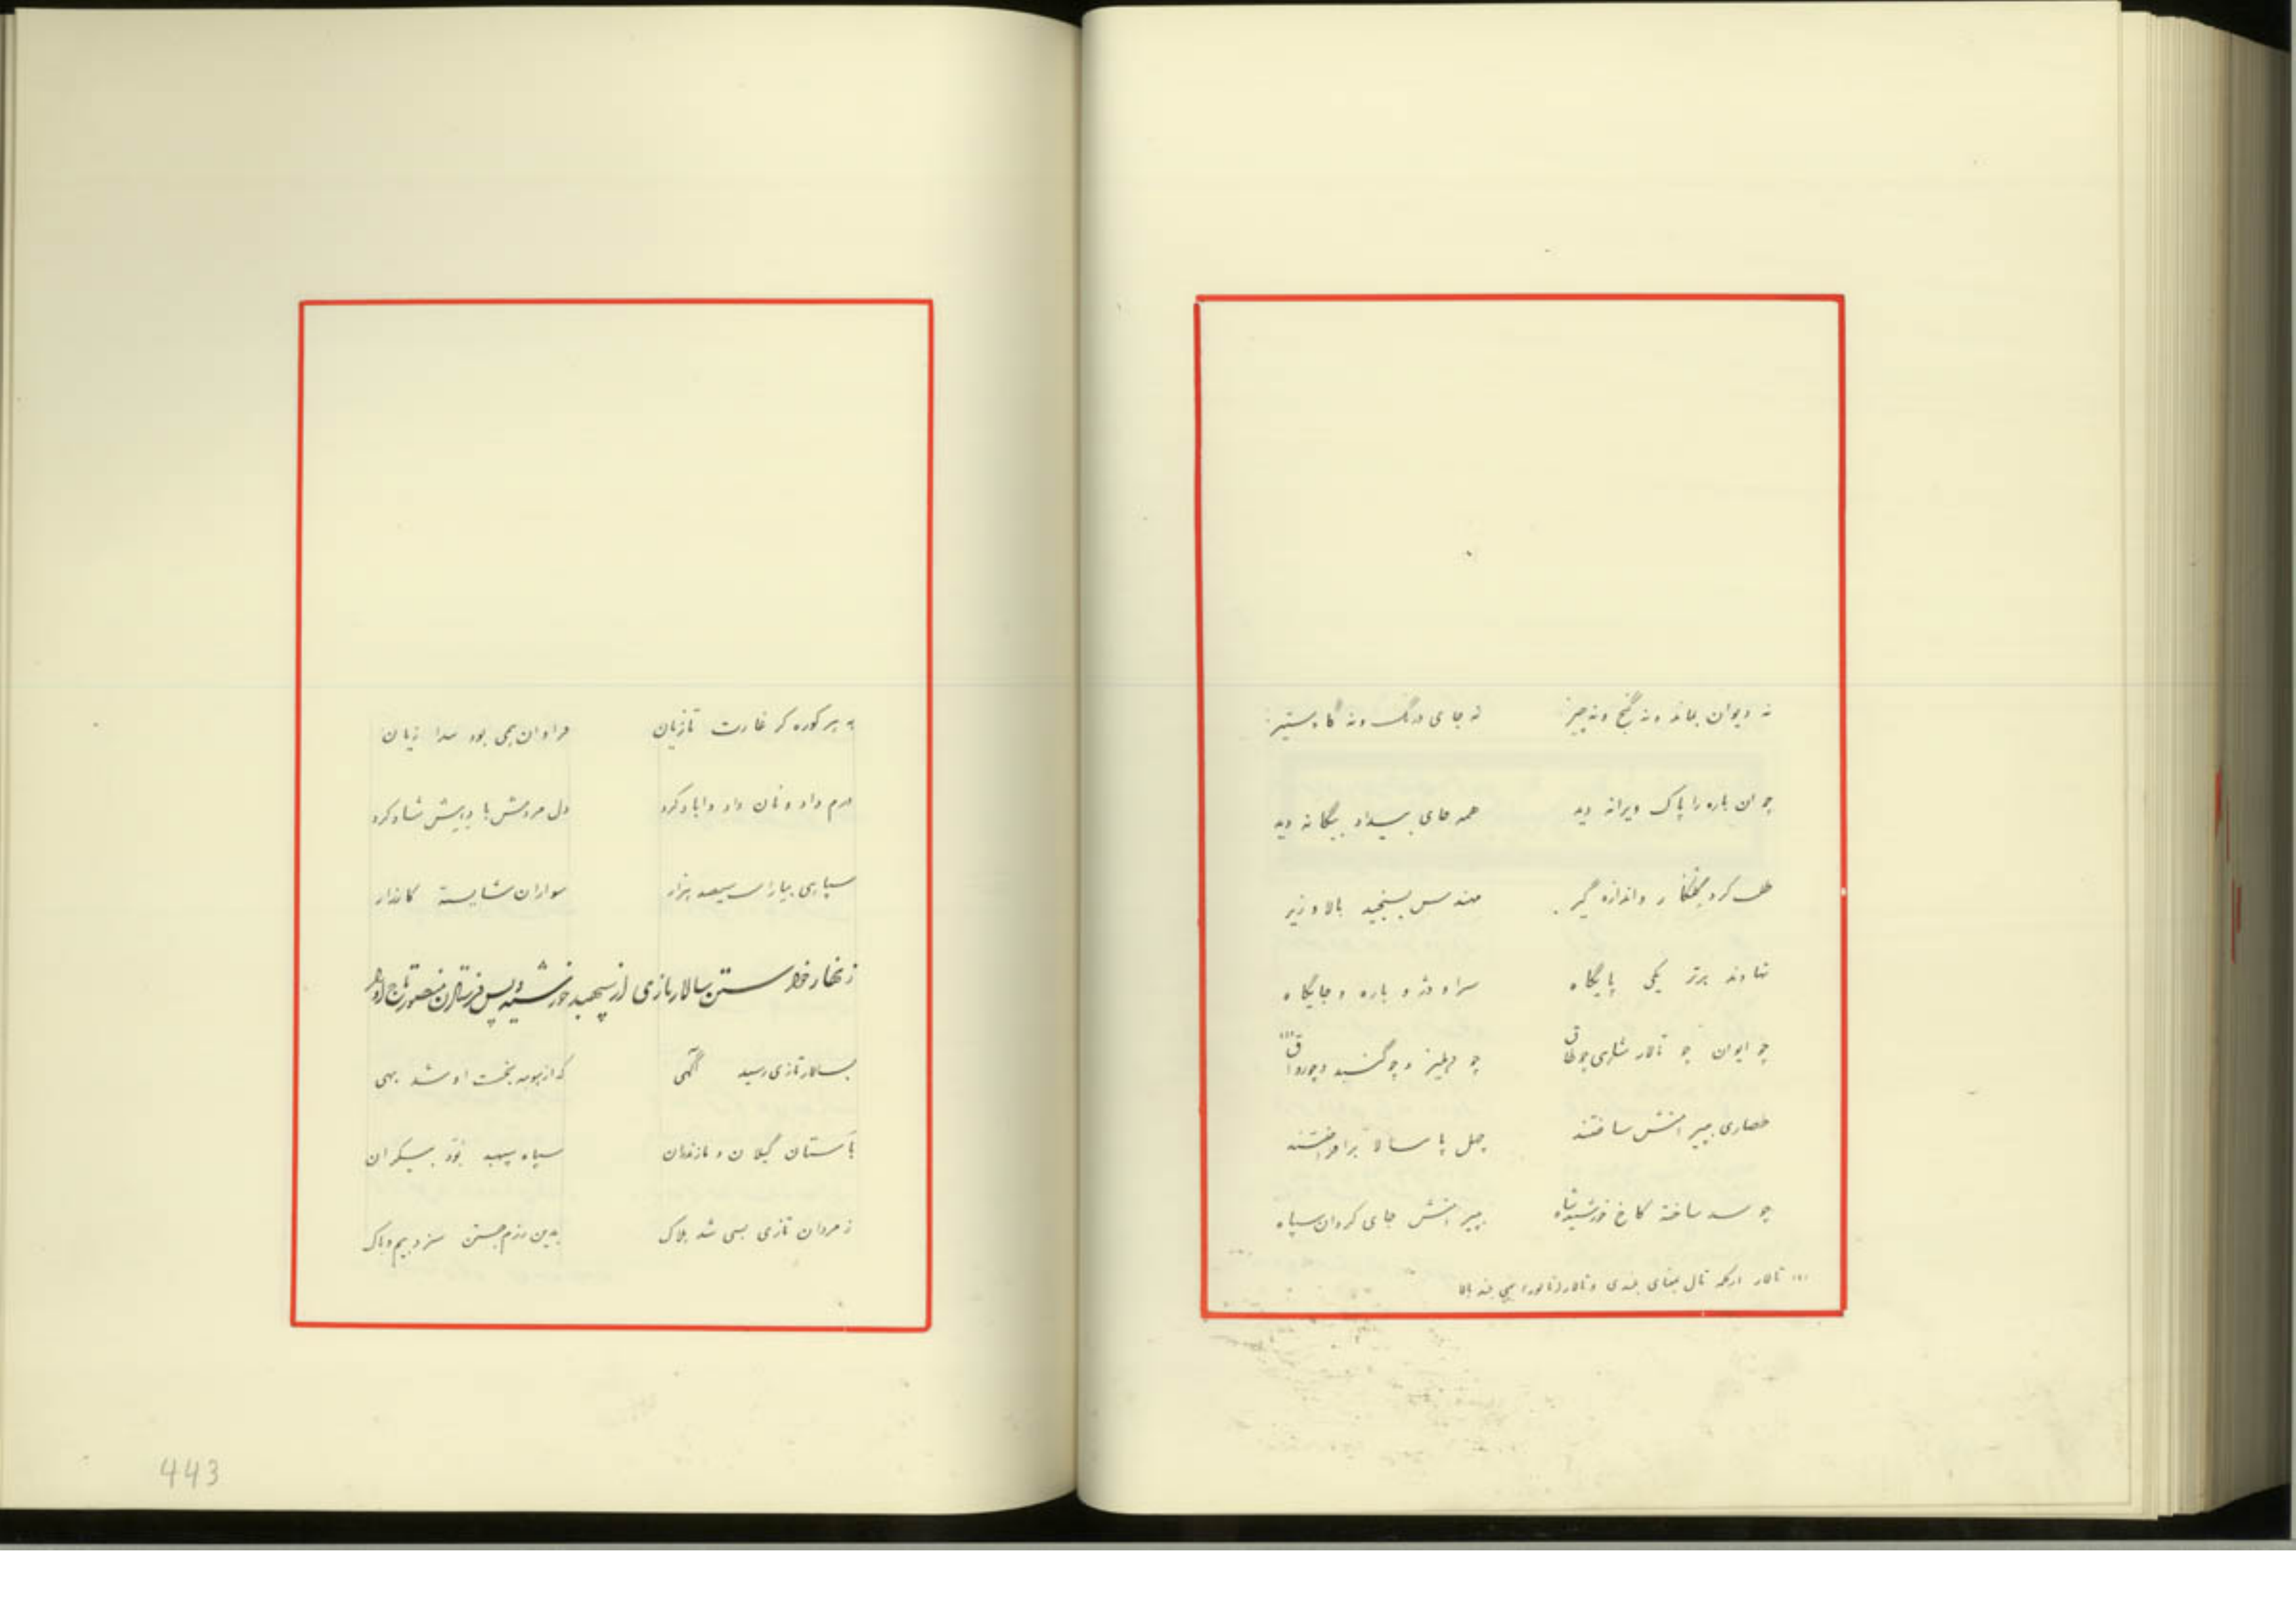 نه دیوان بماند و نه گنج و نه چیز نه جای درنگ و نه گاه ستیز
چو ان باره را پاک ویرانه دید همه جای بیداد بیگانه دید
طلب کرد و اندازه گیر مهندس بسنجید بالا و زیر
نهادند برتر یکی پایگاه سرا و دژ و باره و جایگاه
چو ایوان چو تالار شاهی چو طاق چو دهلیز و چو گنبد و چو رواق
حصاری بپیرامنش ساختند چهل پا بالا برافراختند
چو شد ساخته کاخ خورشید شاه بپیرامنش جای گردان سپاه
تالار از کلمه تال بمعنای بلندی و تالار
به هر کوره کز غارت تازیان فراوان همی بود زیان
درم داد و نان داد و اباد کرد دل مردمش با دهش شاد کرد
سپاهی بیاراست سیصد هزار سواران شایسته کارزار
زنهار خواستن سالار تازی از سپهبد خورشید و پس فرستادن منصور تاج او را
بسالار تازی رسید آگهی که از بهر بخت او شد تهی
باستان گیلان و مازندران سپاه سپهبد بود بیکران
ز مردان تازی بسی شد هلاک بدین رزم جستن سزد بیم و باک
443